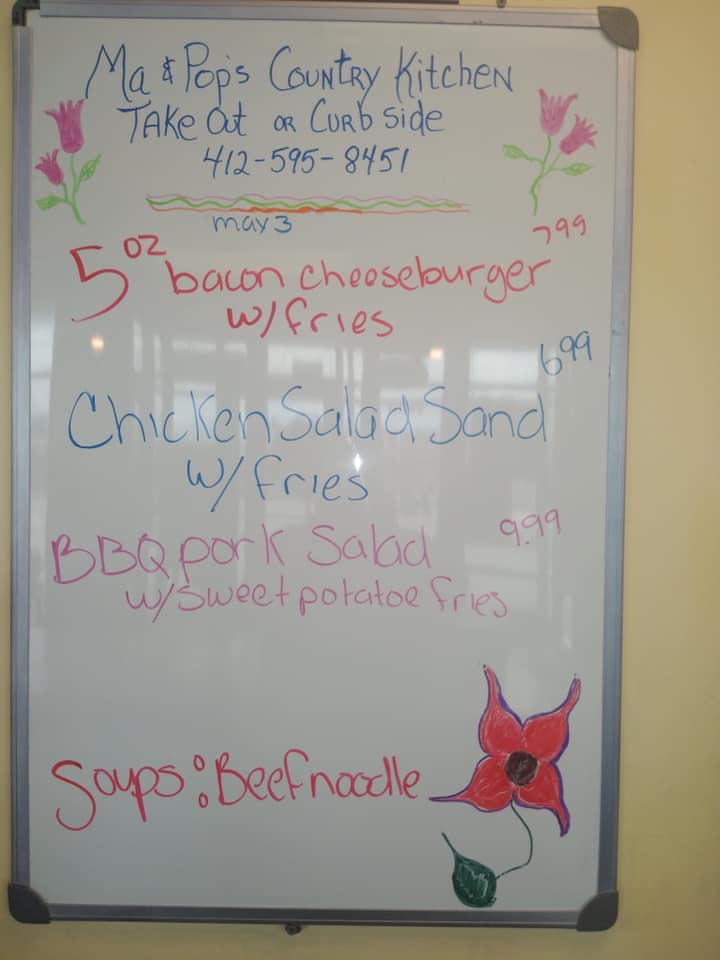 Ma & Pop's Country Kitchen
Take Out or Curb side
412-595-8451
may 3
799
5 oz bacon cheeseburger
w/fries
699
Chicken Salad Sand
w/ fries
BBQ pork Salad 9.99
w/sweet potatoe fries
Soups: Beef noodle